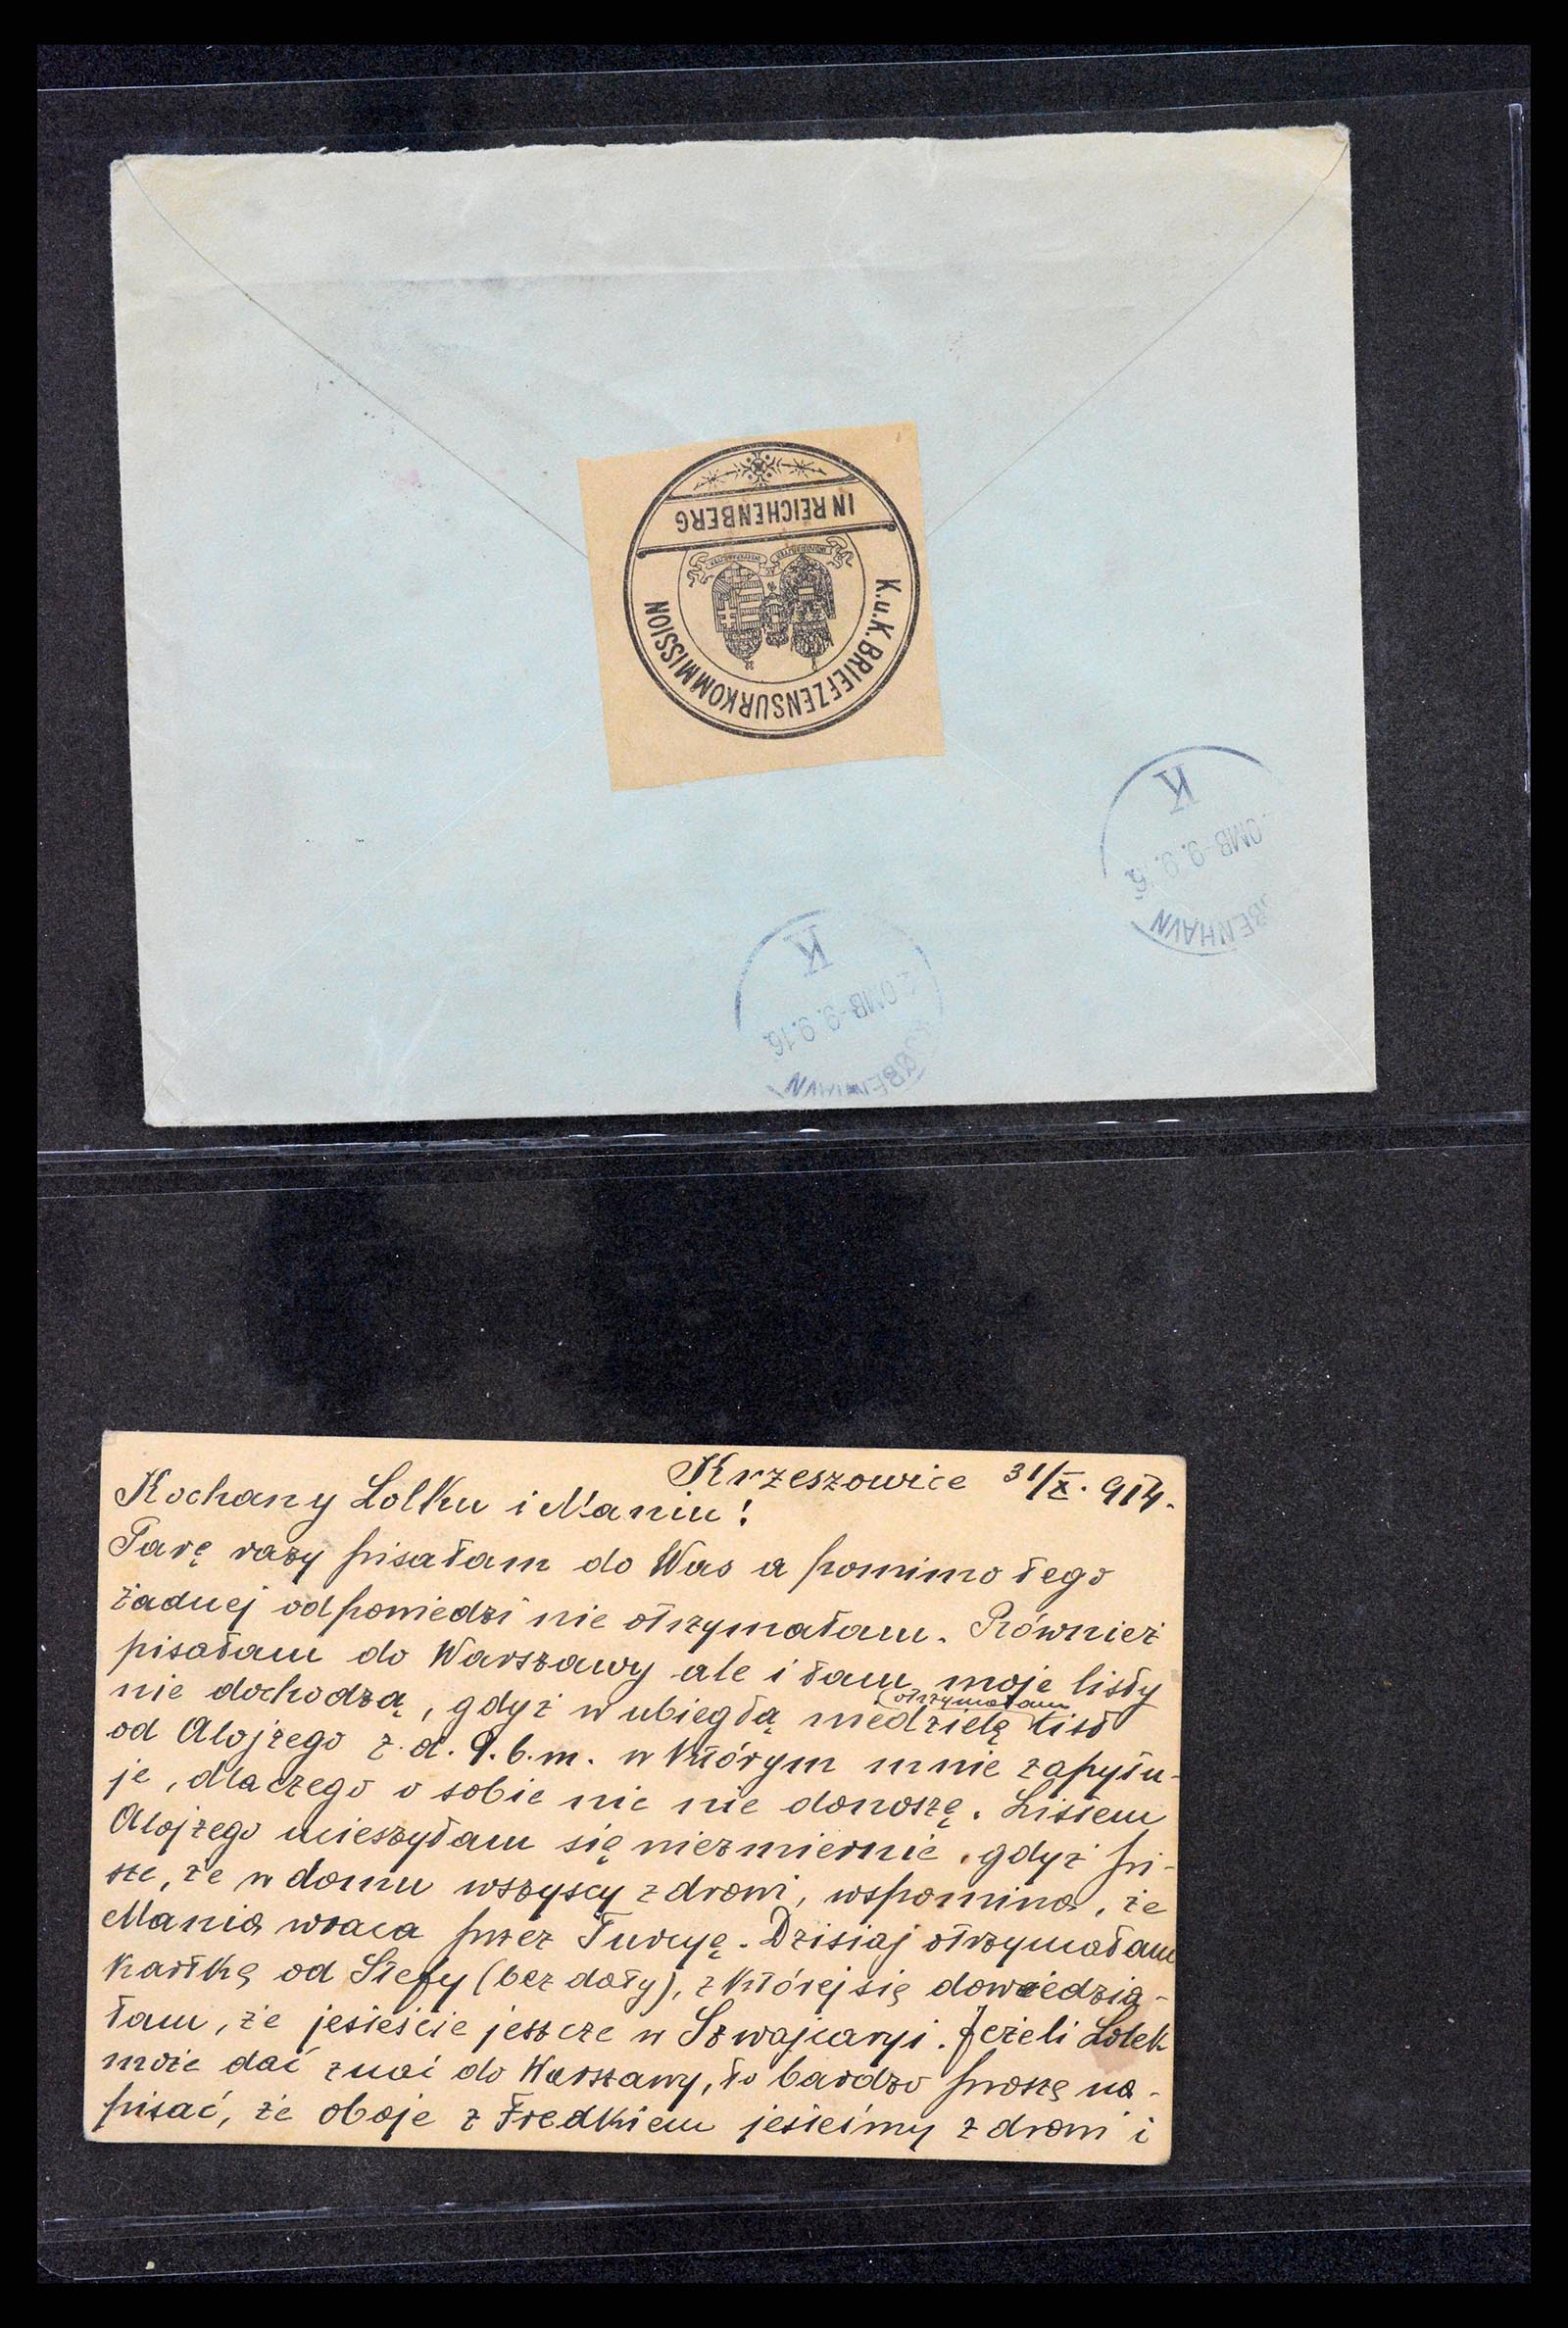 IN REICHENBERG
K.u.K. BRIEFZENSURKOMMISSION
K
OMB-9.9.16.
ØBENHAVN
K
OMB-9.9.16.
KØBENHAVN
Krzeszowice 31/X. 914.
Kochany Lolku i Maniu!
Parę razy pisałam do Was a pomimo tego
żadnej odpowiedzi nie otrzymałam. Również
pisałam do Warszawy ale i tam moje listy
nie dochodzą, gdyż w ubiegłą niedzielę otrzymałam list
od Alojzego z. d. 9. b. m. w którym mnie zapytu-
je, dlaczego o sobie nic nie donoszę. Listem
Alojzego ucieszyłam się niezmiernie, gdyż pi-
sze, że w domu wszyscy zdrowi, wspomina, że
Mania wraca przez Turcyę. Dzisiaj otrzymałam
kartkę od Stefy (bez daty), z której się dowiedzia-
łam, że jesteście jeszcze w Szwajcaryi. Jeżeli Lolek
może dać znać do Warszawy, to bardzo proszę na-
pisać, że oboje z Fredkiem jesteśmy zdrowi i